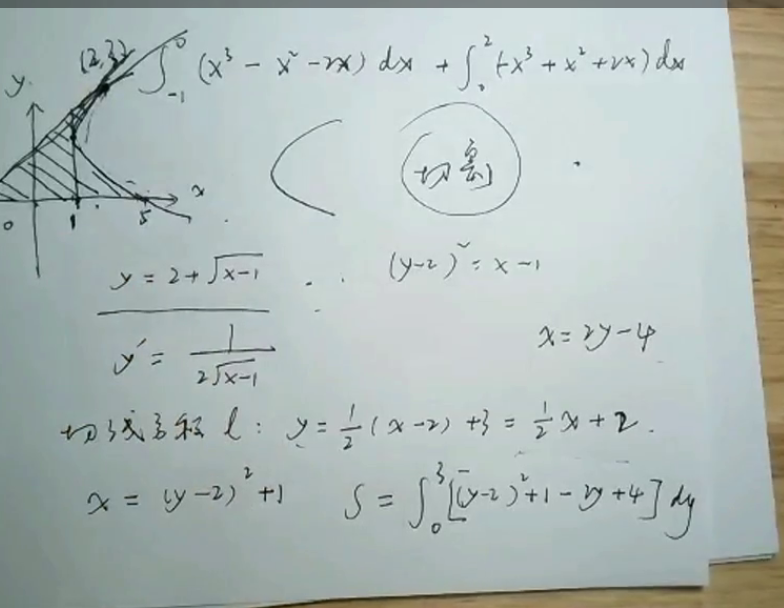 (2,3) ∫_{-1}^{0} (x³ - x² - 2x) dx + ∫_{0}^{2} (-x³ + x² + 2x) dx
y
切割
x
0 1 5
y = 2 + √(x-1)
(y-2)² = x - 1
y' = 1/(2√(x-1))
x = 2y - 4
切线方程 l: y = 1/2 (x-2) + 3 = 1/2 x + 2.
x = (y-2)² + 1
S = ∫_{0}^{3} [(y-2)² + 1 - 2y + 4] dy